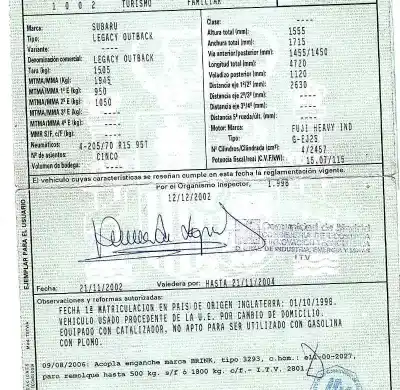 1 0 0 2 TURISMO FAMILIAR
Marca: SUBARU
Tipo: LEGACY OUTBACK
Variante: ----
Denominación comercial: LEGACY OUTBACK
Tara (kg): 1505
MTMA/MMA (Kg): 1945
MTMA/MMA 1º E (kg): 950
MTMA/MMA 2º E (kg): 1050
MTMA/MMA 3º E (kg): ----
MTMA/MMA 4º E (kg): ----
MMR S/F, C/F (kg): ----
Neumáticos: 4-205/70 R15 95T
Nº de asientos: CINCO
Volumen de bodega: ----
Clase: ----
Altura total (mm): 1555
Anchura total (mm): 1715
Vía anterior/posterior (mm): 1455/1450
Longitud total (mm): 4720
Voladizo posterior (mm): 1120
Distancia eje 1º/2º (mm): 2630
Distancia eje 2º/3º (mm): ----
Distancia eje 3º/4º (mm): ----
Distancia 5ª rueda/últ. (mm): ----
Motor: Marca: FUJI HEAVY IND
Tipo: G-EJ25
Nº Cilindros/Cilindrada (cm³): 4/2457
Potencia fiscal/real (C.V.F/kW): 15.07/115
El vehículo cuyas características se reseñan cumple en esta fecha la reglamentación vigente.
Por el Organismo Inspector, 1.998
12/12/2002
Comunidad de Madrid
I.T.V.
EJEMPLAR PARA EL USUARIO
Fecha: 21/11/2002 Valedera por: HASTA 21/11/2004
Observaciones y reformas autorizadas:
FECHA 1ª MATRICULACION EN PAIS DE ORIGEN INGLATERRA: 01/10/1998.
VEHICULO USADO PROCEDENTE DE LA U.E. POR CAMBIO DE DOMICILIO.
EQUIPADO CON CATALIZADOR. NO APTO PARA SER UTILIZADO CON GASOLINA
CON PLOMO.
09/08/2006: Acopla enganche marca BRINK, tipo 3293, c.hom.: e11 00-2027,
para remolque hasta 500 kg. s/f ó 1800 kg. c/f.- I.T.V. 2801.